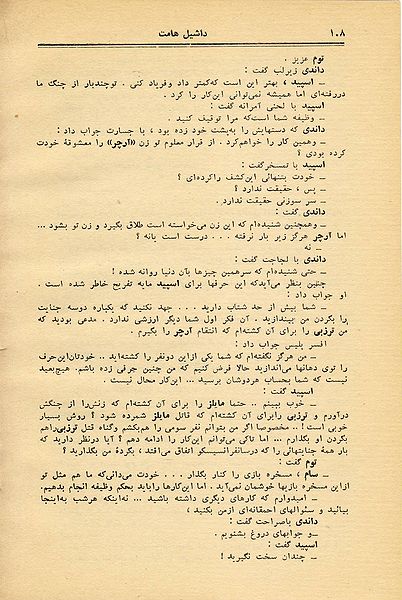 ۱۰۸ داشیل هامت
توم عزیز.
داندی زیرلب گفت :
ــ اسپید ، بهتر این است که کمتر داد و فریاد کنی . تو چندبار از چنگ ما
دررفته‌ای اما همیشه نمی‌توانی این کار را کرد .
اسپید با لحنی آمرانه گفت :
ــ وظیفه شما است که مرا توقیف کنید .
داندی که دستهایش را به پشت خود زده بود ، با جسارت جواب داد :
ــ وهمین کار را خواهم کرد . از قرار معلوم تو زن «آرچر» را معشوقهٔ خودت
کرده بودی ؟
اسپید با تمسخر گفت :
ــ خودت بتنهائی این کشف را کرده‌ای ؟
ــ پس ، حقیقت ندارد ؟
ــ سر سوزنی حقیقت ندارد .
داندی گفت :
ــ وهمچنین شنیده‌ام که این زن می‌خواسته است طلاق بگیرد و زن تو بشود ...
اما آرچر هرگز زیر بار نرفته ... درست است یا نه ؟
ــ نه
داندی با لجاجت گفت :
ــ حتی شنیده‌ام که سر همین چیزها بآن دنیا روانه شده !
چنین بنظر می‌آید که این حرفها برای اسپید مایه تفریح خاطر شده است .
او جواب داد :
ــ شما بیش از حد شتاب دارید ... جهد نکنید که یکباره دوسه جنایت
را بگردن من بیندازید . آن فکر اول شما دیگر ارزشی ندارد . مدعی بودید که
من ترزبی را برای آن کشته‌ام که انتقام آرچر را بگیرم .
افسر پلیس جواب داد :
ــ من هرگز نگفته‌ام که شما یکی از این دو نفر را کشته‌اید .. خودتان این حرف
را توی دهانها می‌اندازید حالا فرض کنیم که من چنین حرفی زده باشم . هیچ بعید
نیست که شما بحساب هردوشان برسید ... این کار محال نیست .
اسپید گفت :
ــ خوب ببینم ... حتما مایلز را برای آن کشته‌ام که زنش را از چنگش
درآورم و ترزبی را برای آن کشته‌ام که قاتل مایلز شمرده شود ؟ روش بسیار
خوبی است ! .. مخصوصا اگر من بتوانم نفر سومی را هم بکشم و گناه قتل ترزبی را هم
بگردن او بگذارم ... اما تا کی می‌توانم این کار را ادامه دهم ؟ آیا در نظر دارید که
بار همهٔ جنایتهائی را که در سانفرانسیسکو اتفاق می‌افتد ، بگردهٔ من بگذارید ؟
توم گفت :
ــ سام ، مسخره بازی را کنار بگذار .... خودت می‌دانی که ما هم مثل تو
از این مسخره بازیها خوشمان نمی‌آید . اما این کارها را باید بحکم وظیفه انجام بدهیم .
ــ امیدوارم که کارهای دیگری داشته باشید ... نه اینکه هرشب به اینجا
بیائید و سئوالهای احمقانه‌ای از من بکنید ،
داندی با صراحت گفت :
ــ و جوابهای دروغ بشنویم .
اسپید گفت :
ــ چندان سخت نگیرید !